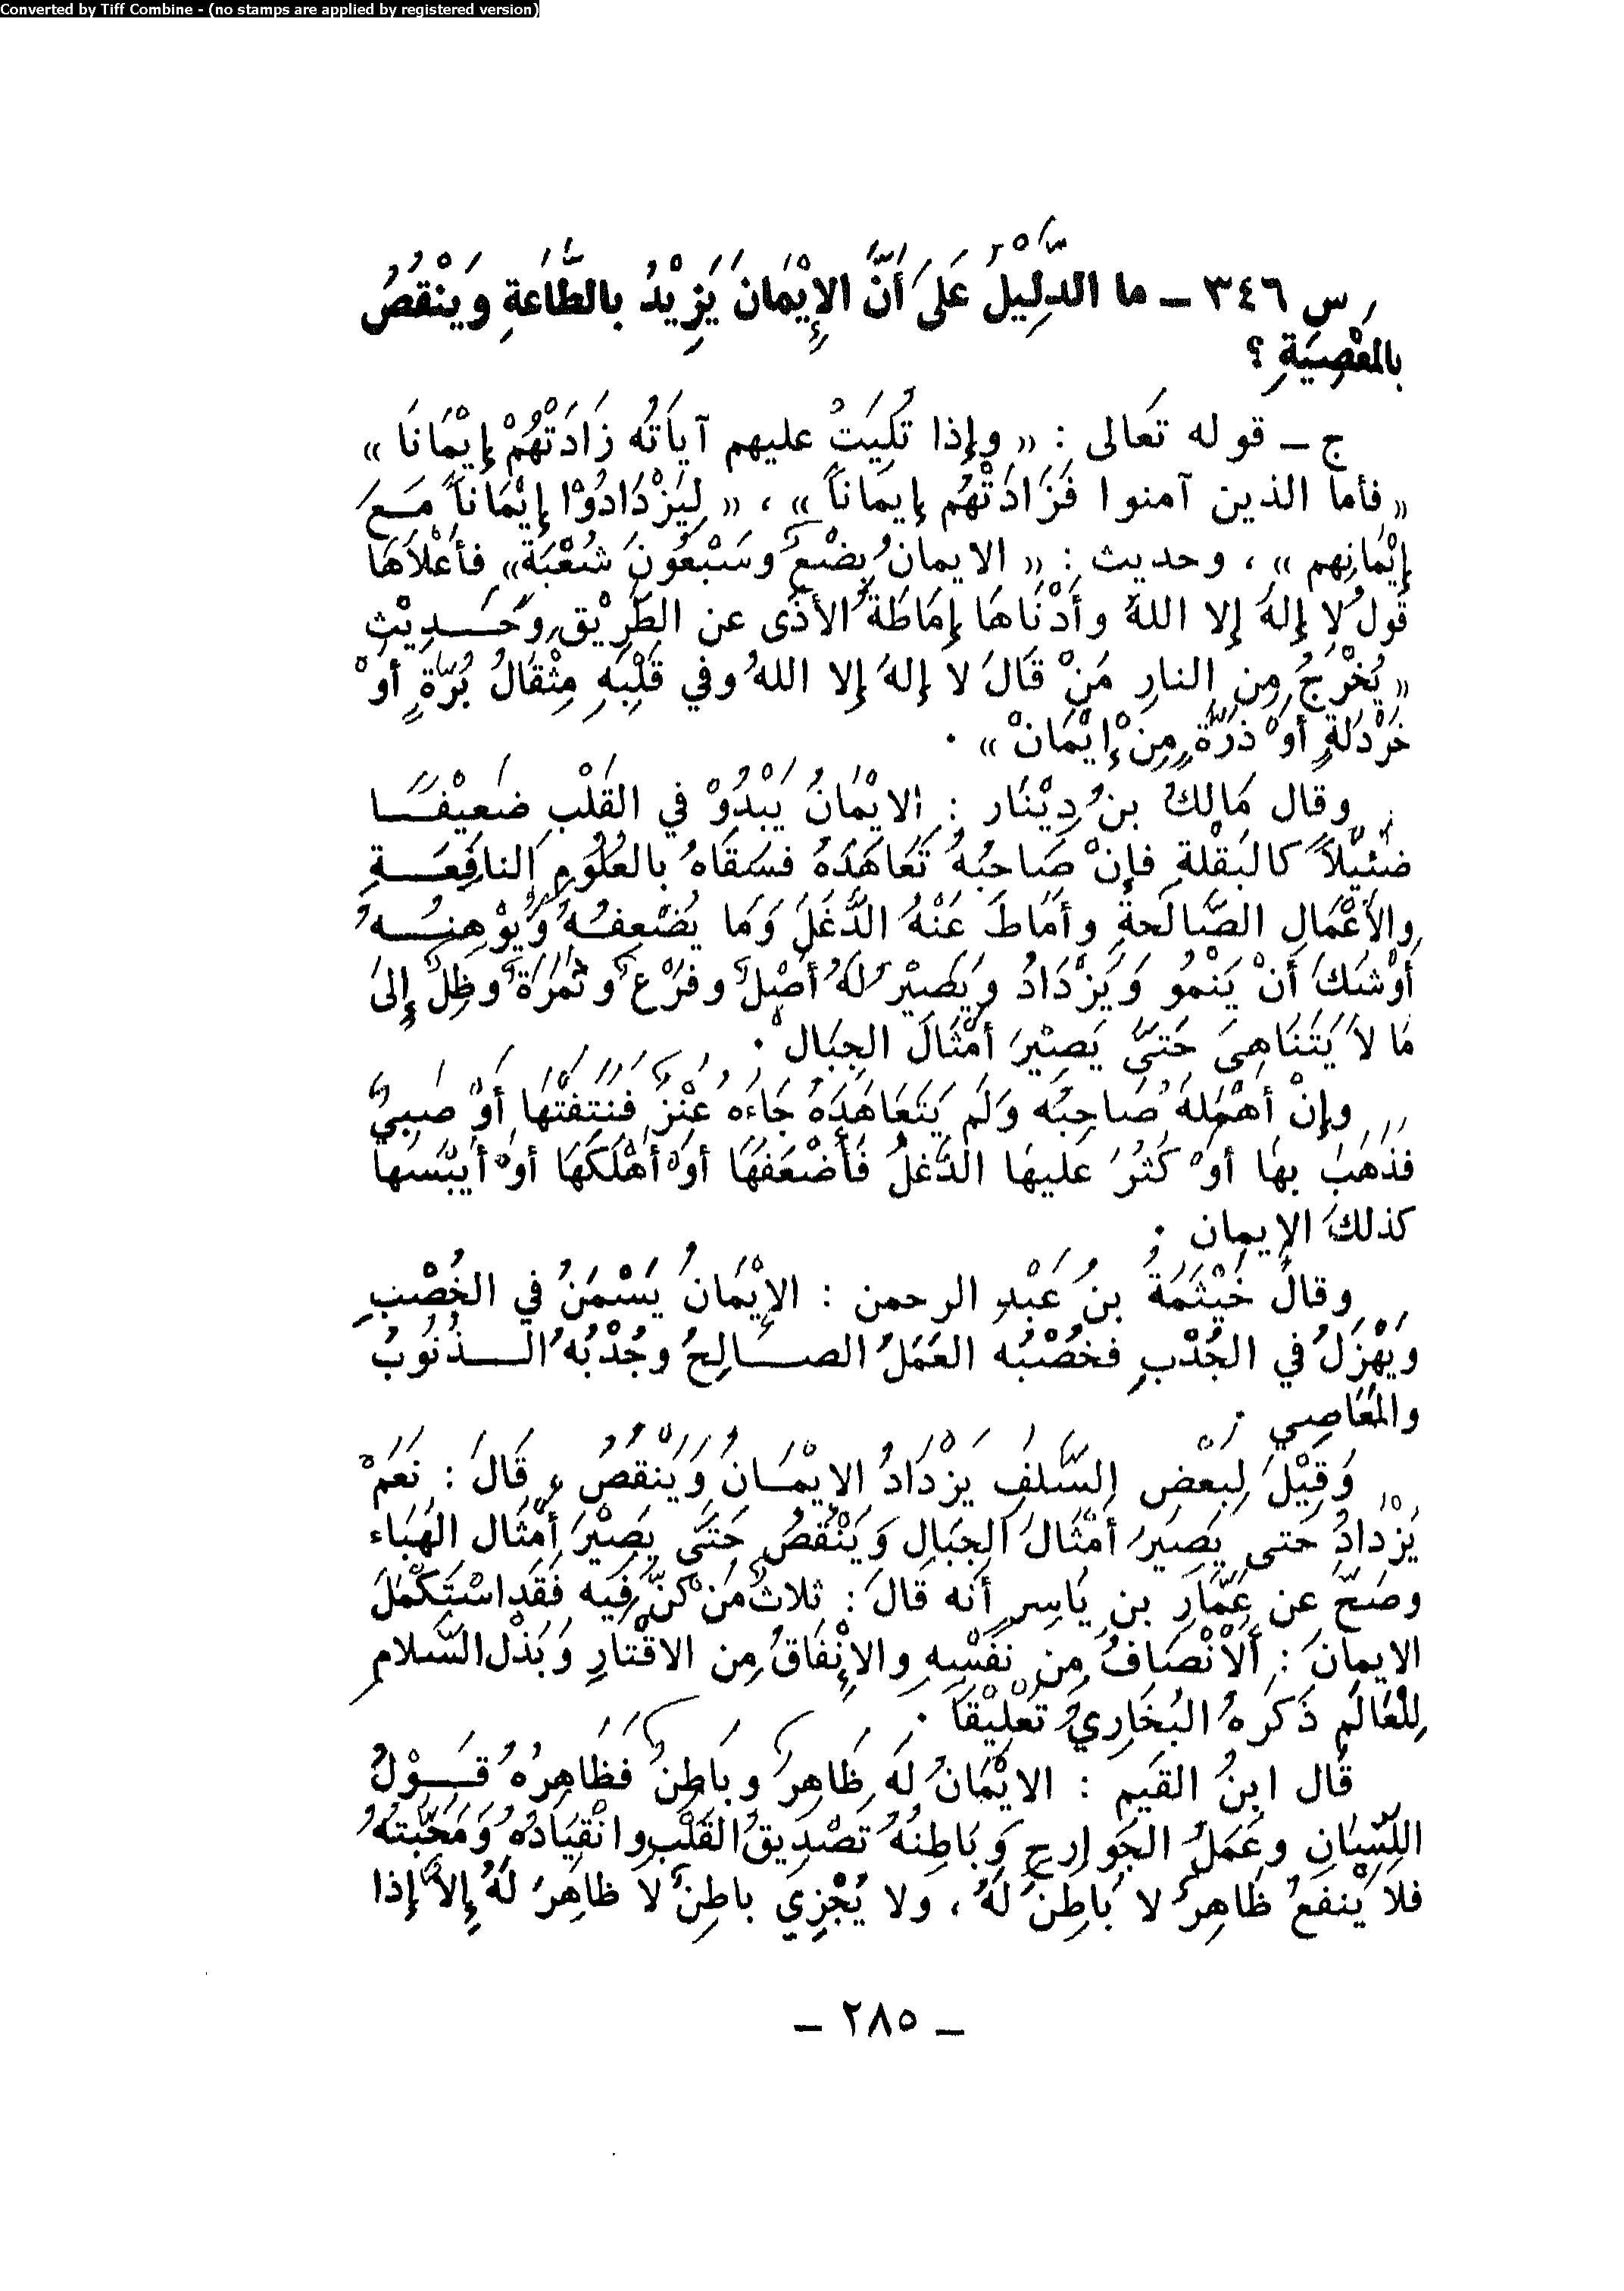 Converted by Tiff Combine - (no stamps are applied by registered version)
س ٣٤٦ ــ ما الدَّلِيْلُ عَلىَ أَنَّ الإِيْمَانَ يَزِيْدُ بالطَّاعَةِ وَيَنْقُصُ
بالمَعْصِيَةِ ؟
ج ــ قوله تَعَالى : « وإِذا تُلِيَتْ عليهم آيَاتُه زَادَتْهُمْ إِيْمَانَا »
« فأما الذين آمنوا فَزَادَتْهُم إِيمَاناً » ، « لِيَزْدَادُوْا إِيْمَاناً مَـعَ
إِيْمَانِهم » ، وحديث : « الايمانُ بِضْعٌ وسَبْعُونَ شُعْبَةً» فأَعْلاَهَا
قَولُ لا إِلهَ إِلا اللهُ وأَدْنَاهَا إِمَاطَةُ الأَذَى عن الطَرِيْقِ وحَـــدِيْثِ
« يُخْرَجُ مِن النارِ مَنْ قَالَ لا إِلهَ إِلا اللهُ وفي قَلْبِهِ مِثْقَالُ بُرَّةٍ أَوْ
خَرْدَلَةٍ أَوْ ذَرَّةٍ مِنْ إِيْمَانْ » ٠
وقال مَالِكُ بنُ دِيْنَار : الايْمَانُ يَبْدُوْ في القَلْبِ ضَعِيْفًـــا
ضَئِيْلاً كالبَقْلةِ فإِنْ صَاحِبُهُ تَعَاهَدَهُ فسَقَاهُ بالعُلُوْمِ النافِعَـــةِ
والأَعْمَالِ الصَّالَحةِ وأَمَاطَ عَنْهُ الدَّغَلَ وَمَا يُضْعِفُـهُ وَيُوْهِنُـــهُ
أَوْشَكَ أَنْ يَنْمُو وَيَزْدَادُ وَيَصِيْرُ لَهُ أَصْلٌ وفَرْعٌ وثَمَرَةٌ وظِلٌ إِلىَ
مَا لاَ يَتَنَاهِىَ حَتىَّ يَصِيْرَ أَمْثَالَ الجِبَال ٠
وإِنْ أَهْمَلهُ صَاحِبُه وَلَم يَتَعَاهَدْهُ جَاءَه عَنْزٌ فنتفتْها أَوْ صَبِيٌّ
فذَهَبَ بِهَا أَوْ كَثُرَ عليها الدَّغلُ فَأَضْعَفَهَا أَوْ أَهْلَكَهَا أَوْ أَيْبَسَها
كذلكَ الإِيمان ٠
وقالَ خَيْثَمَةُ بنُ عَبْدِ الرحمن : الإِيْمَانُ يَسْمَنُ في الخُصْبِ
وَيَهْزَلُ في الجُدْبِ فخُصْبُه العَمَلُ الصـــالِحُ وجُدْبُه الـــذُنُوبُ
والمَعَاصِي ٠
وَقِيْلَ لِبَعْضِ السَّلفِ يَزْدَادُ الايْمَـانُ وَيَنقصُ ، قَالَ : نَعَمْ
يَزْدَادُ حتى يَصِيَر أَمْثَالَ الجِبَالِ وَيَنْقُصُ حَتىَّ يَصِيْرَ أَمْثَال الهَبَاء
وصَحَّ عن عَمَّارِ بن يَاسِرٍ أَنه قَالَ : ثلاثٌ مَنْ كنَّ فِيه فَقَد اسْتَكْمَلَ
الايمانَ : أَلاْنْصَافُ مِن نفْسِهِ والإِنْفَاقُ مِن الاقْتارِ وَبَذْل السَّلام
لِلْعَالَم ذَكَرهُ البُخَارِيُ تَعْلِيْقَا ٠
قَال ابنُ القَيم : الايْمَانُ لَه ظَاهِرٌ وبَاطِنٌ فَظَاهِرُهُ قَـــوْلُ
اللِّسَانِ وعَمَلُ الجَوارِحِ وَبَاطِنُهُ تَصْدِيقُ القَلْبِ وانْقِيَادُهُ وَمَحَبَّتهُ
فلا يَنفعُ ظَاهِرٌ لا بَاطِنَ لَهُ ، ولا يُجْزِي باطِنٌ لا ظاهِرَ لَهُ إِلاَّ إِذا
ــ ٢٨٥ ــ